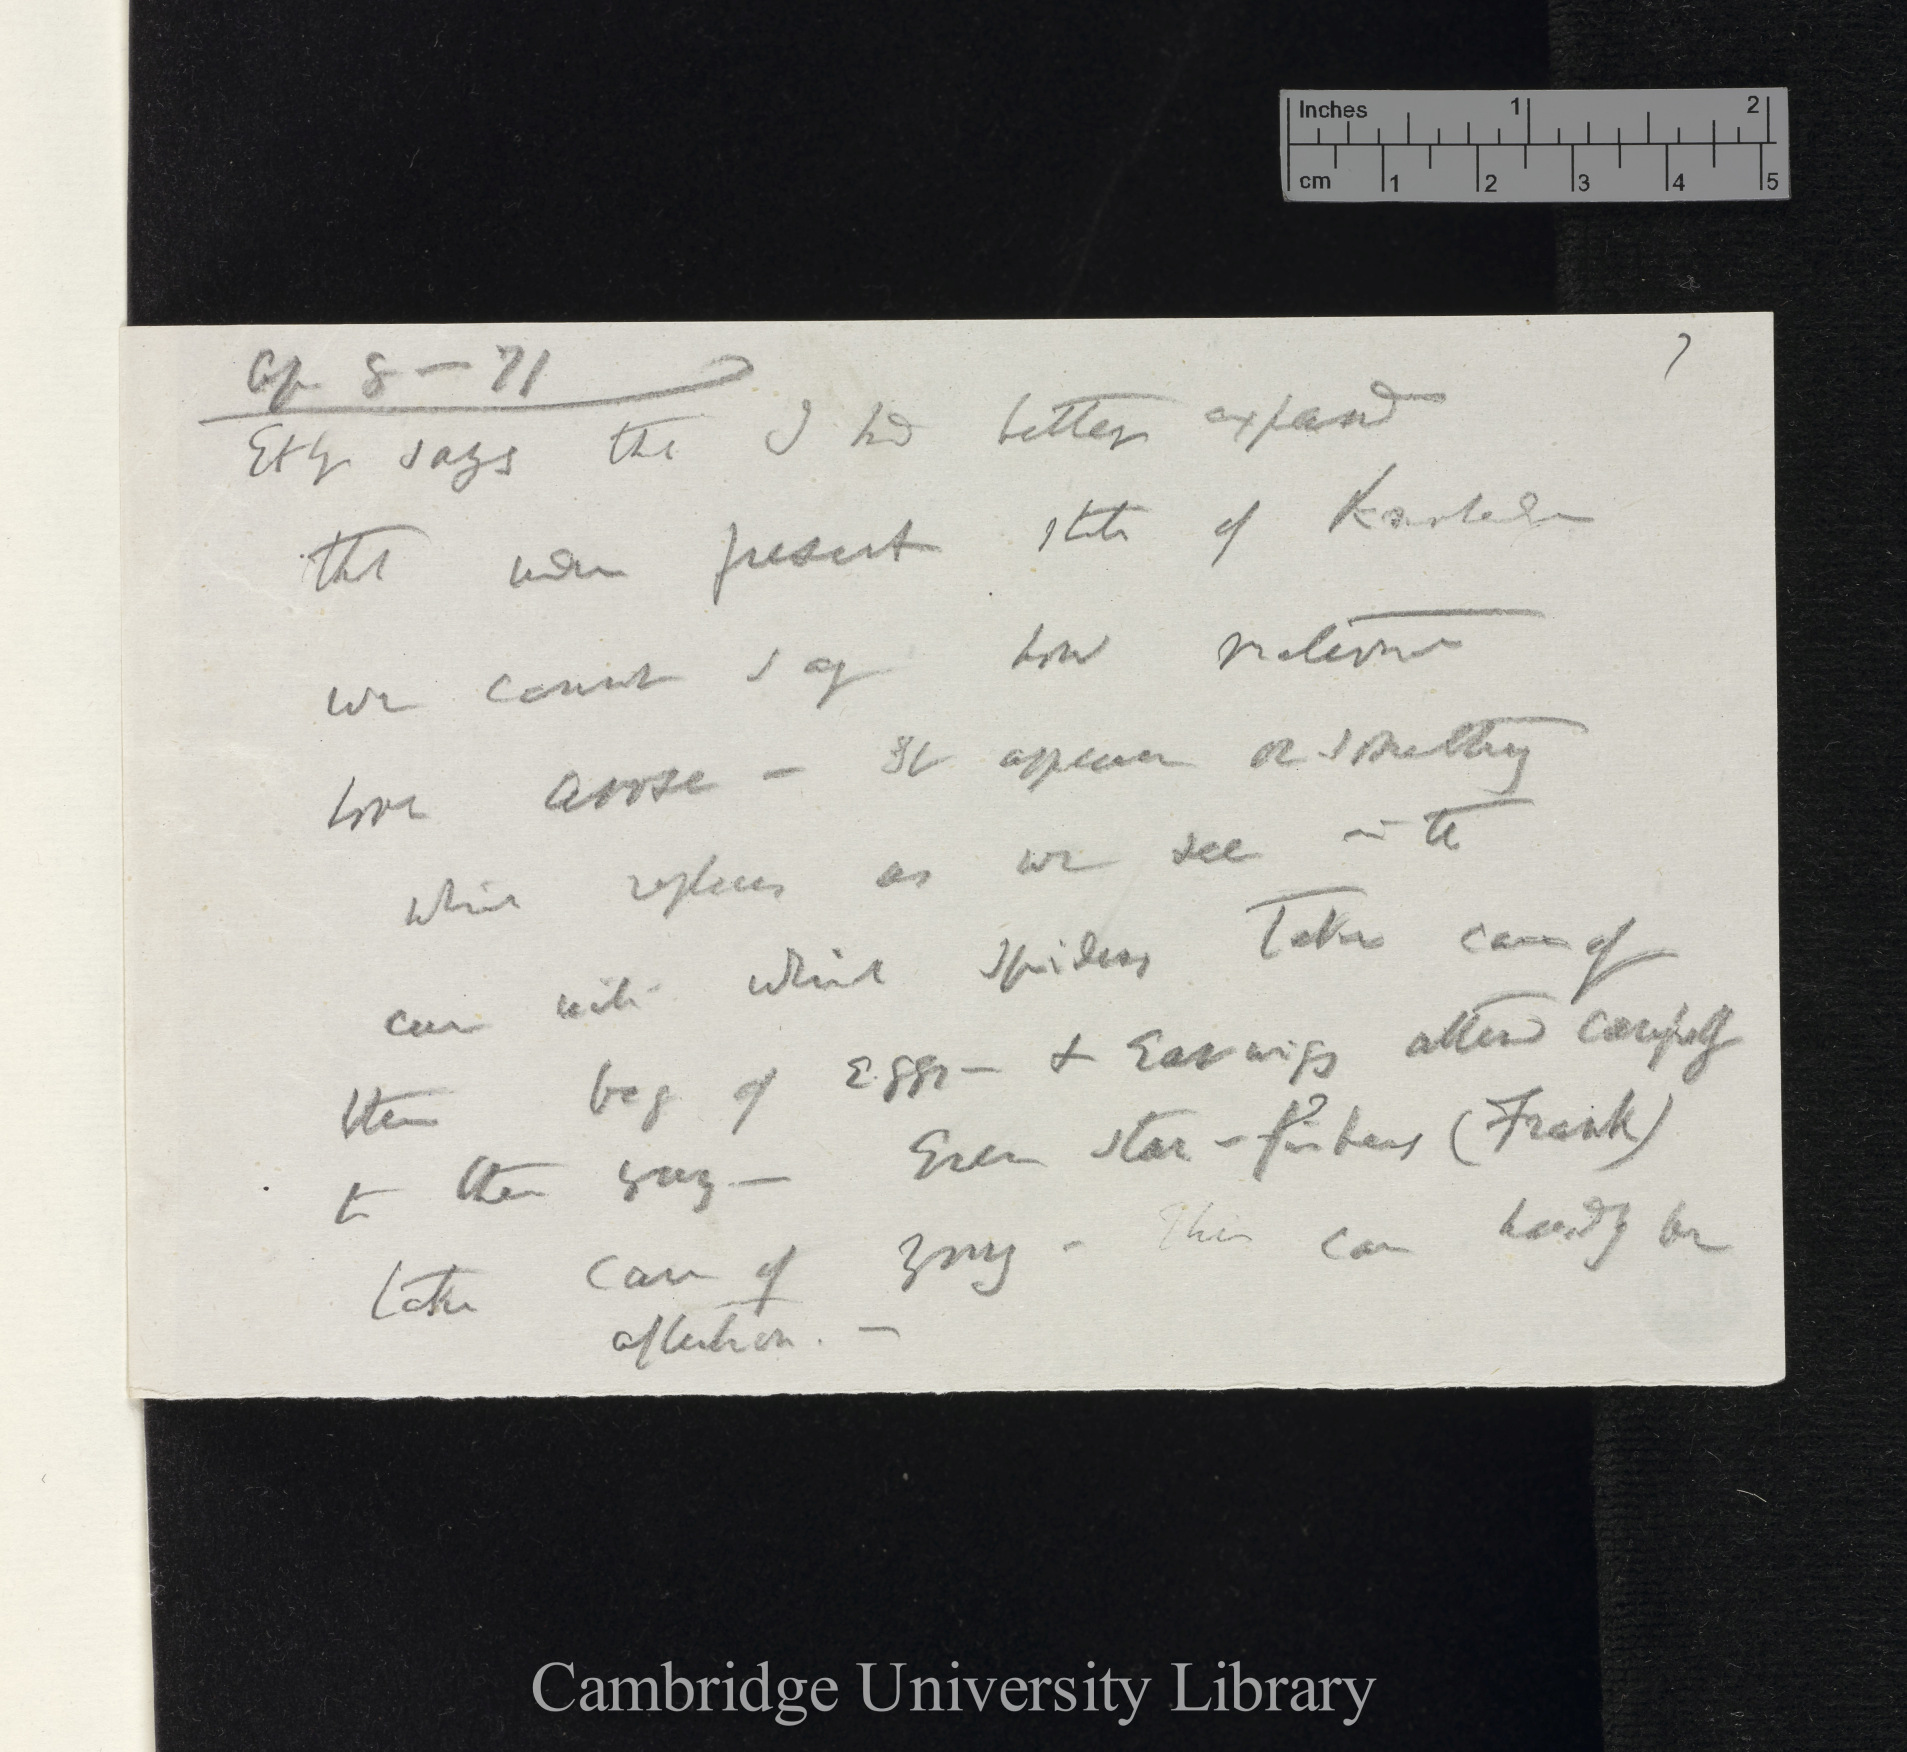 Inches 1 2
cm 1 2 3 4 5
Ap 8 — 71
Etty says that I had better expand
that under present state of Knowledge
we cannot say how maternal
love arose — It appears or something
which replaces as we see in the
care with which spiders take care of
their bag of Eggs — & Earwigs attend carefully
to their young — Even star-fishes (Frank)
take care of young — This can hardly be
affection. —
Cambridge University Library